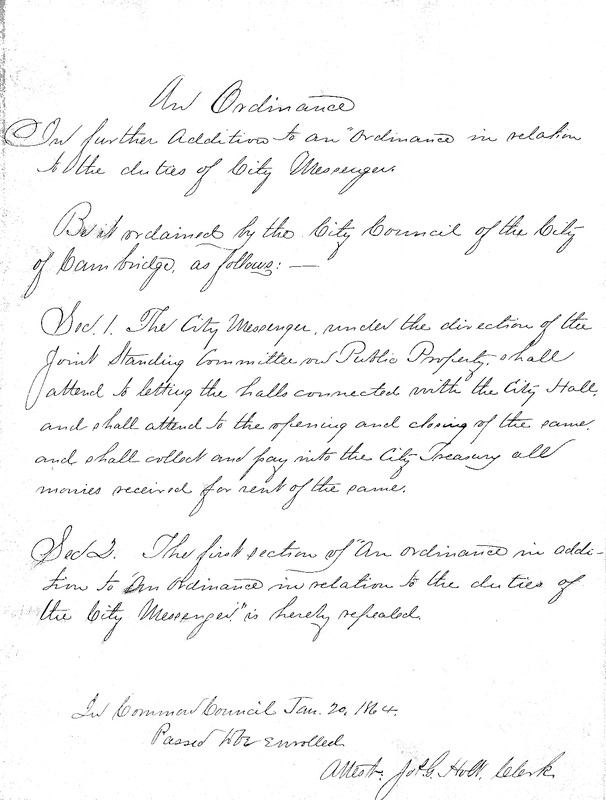 An Ordinance
In further Addition to an "Ordinance in relation
to the duties of City Messenger.
Be it ordained by the City Council of the City
of Cambridge, as follows: —
Sec. 1. The City Messenger, under the direction of the
Joint Standing Committee on Public Property, shall
attend to letting the halls connected with the City Hall,
and shall attend to the opening and closing of the same,
and shall collect and pay into the City Treasury all
monies received for rent of the same.
Sec 2. The first section of "An ordinance in addi-
tion to An Ordinance in relation to the duties of
the City Messenger" is hereby repealed.
In Common Council Jan. 20, 1864.
Passed to be enrolled
Attest. Jos. G. Holt, Clerk